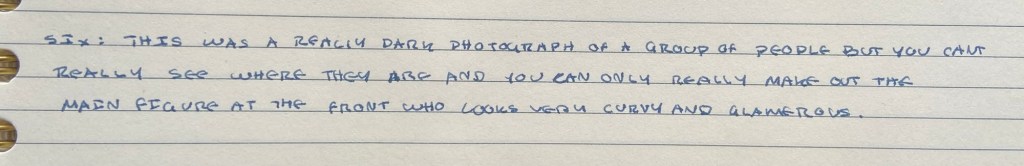 SIX: THIS WAS A REALLY DARK PHOTOGRAPH OF A GROUP OF PEOPLE BUT YOU CANT
REALLY SEE WHERE THEY ARE AND YOU CAN ONLY REALLY MAKE OUT THE
MAIN FIGURE AT THE FRONT WHO LOOKS VERY CURVY AND GLAMEROUS.